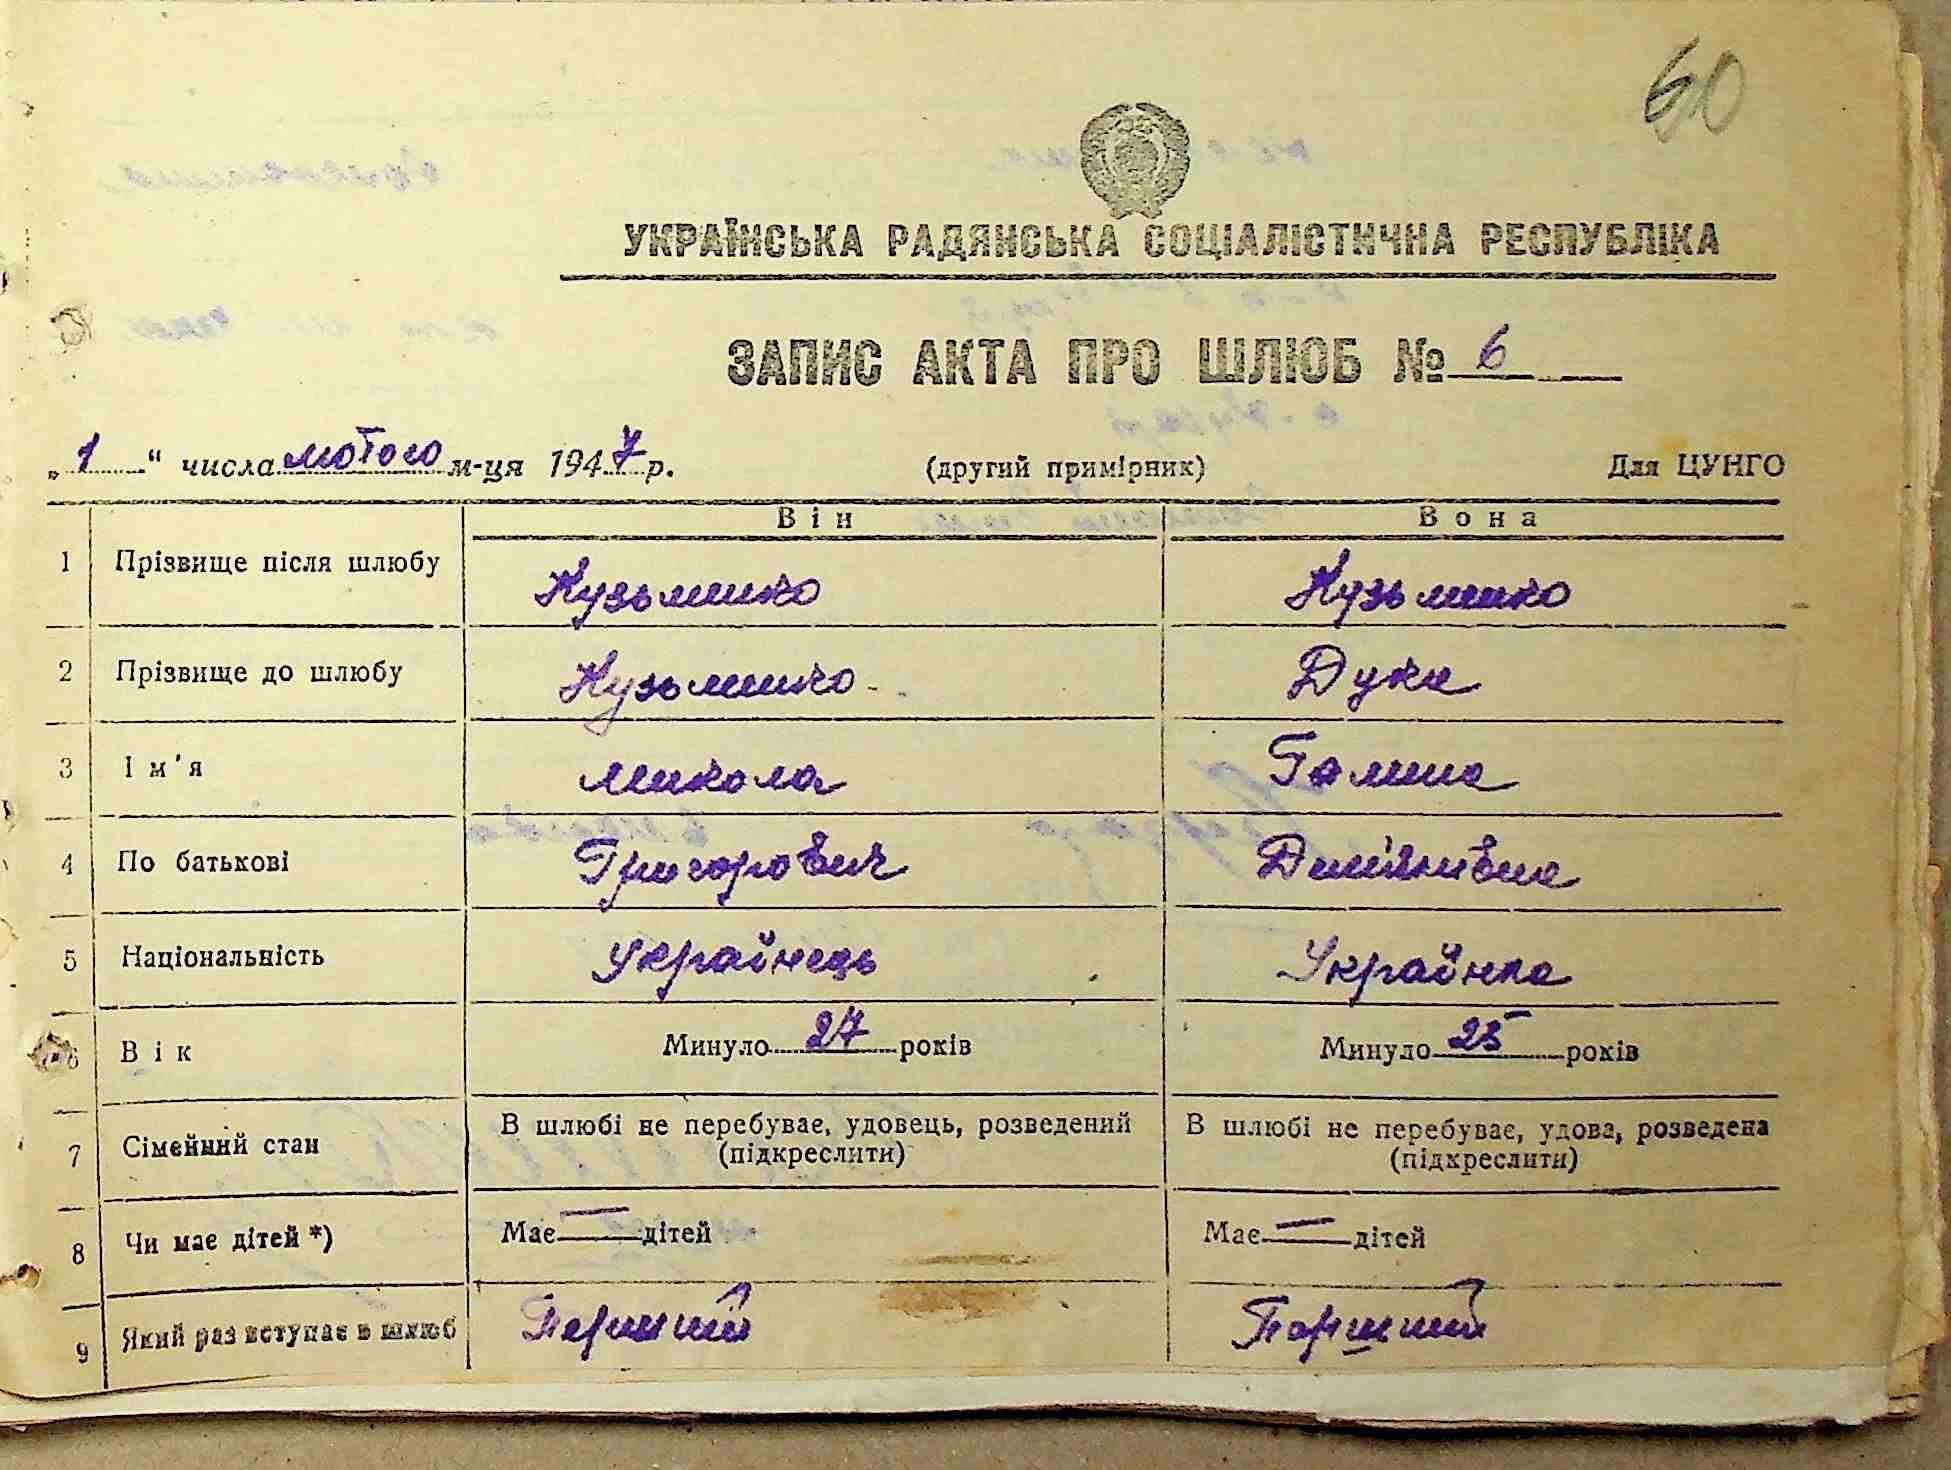 60
УКРАЇНСЬКА РАДЯНСЬКА СОЦІАЛІСТИЧНА РЕСПУБЛІКА
ЗАПИС АКТА ПРО ШЛЮБ № 6
„1“ числа лютого м-ця 1947 р. (другий примірник) Для ЦУНГО
Він Вона
1 Прізвище після шлюбу Кузьменко Кузьменко
2 Прізвище до шлюбу Кузьменко Дука
3 Ім'я Микола Галина
4 По батькові Григорович Демянівна
5 Національність Українець Українка
6 Вік Минуло 27 років Минуло 25 років
7 Сімейний стан В шлюбі не перебуває, удовець, розведений (підкреслити) В шлюбі не перебуває, удова, розведена (підкреслити)
8 Чи має дітей *) Має — дітей Має — дітей
9 Який раз вступає в шлюб Перший Перший